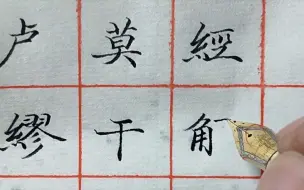 卢莫經
繆干角